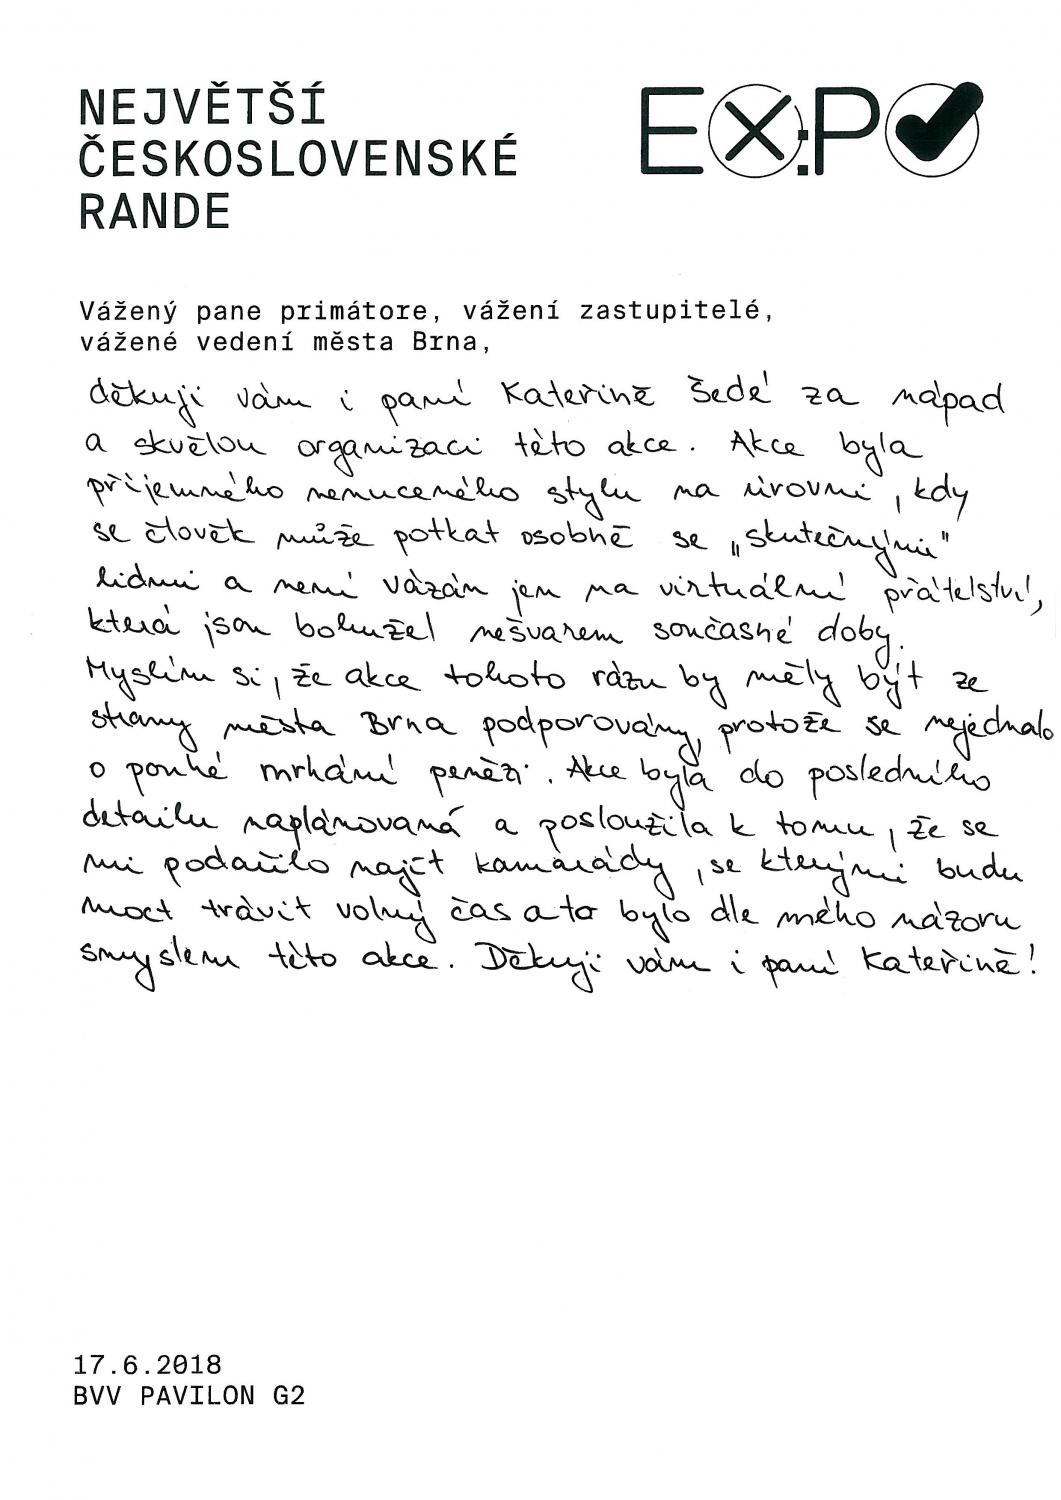 NEJVĚTŠÍ
ČESKOSLOVENSKÉ
RANDE
EX:PO
Vážený pane primátore, vážení zastupitelé,
vážené vedení města Brna,
děkuji vám i paní Kateřině Šedé za nápad
a skvělou organizaci této akce. Akce byla
příjemného nenuceného stylu na úrovni, kdy
se člověk může potkat osobně se „skutečnými"
lidmi a není vázán jen na virtuální přátelství,
která jsou bohužel nešvarem současné doby.
Myslím si, že akce tohoto rázu by měly být ze
strany města Brna podporovány, protože se nejednalo
o pouhé mrhání penězi. Akce byla do posledního
detailu naplánovaná a posloužila k tomu, že se
mi podařilo najít kamarády, se kterými budu
moct trávit volný čas a to bylo dle mého názoru
smyslem této akce. Děkuji vám i paní Kateřině!
17.6.2018
BVV PAVILON G2